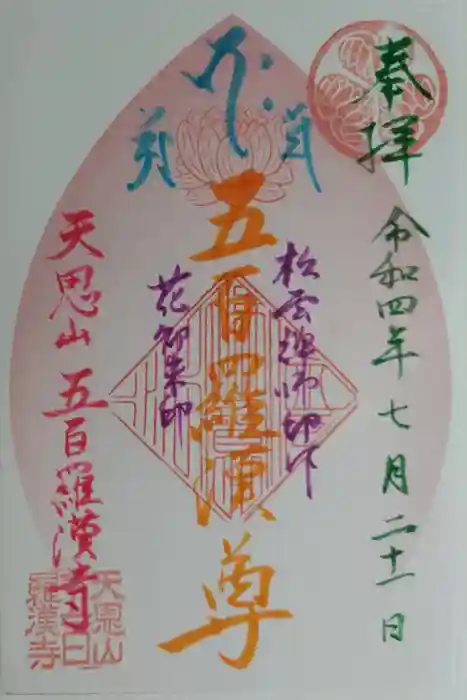 奉拝
令和四年七月二十一日
五百羅漢尊
松雲禅師御印
花御朱印
天恩山 五百羅漢寺
天恩山
五百
羅漢寺